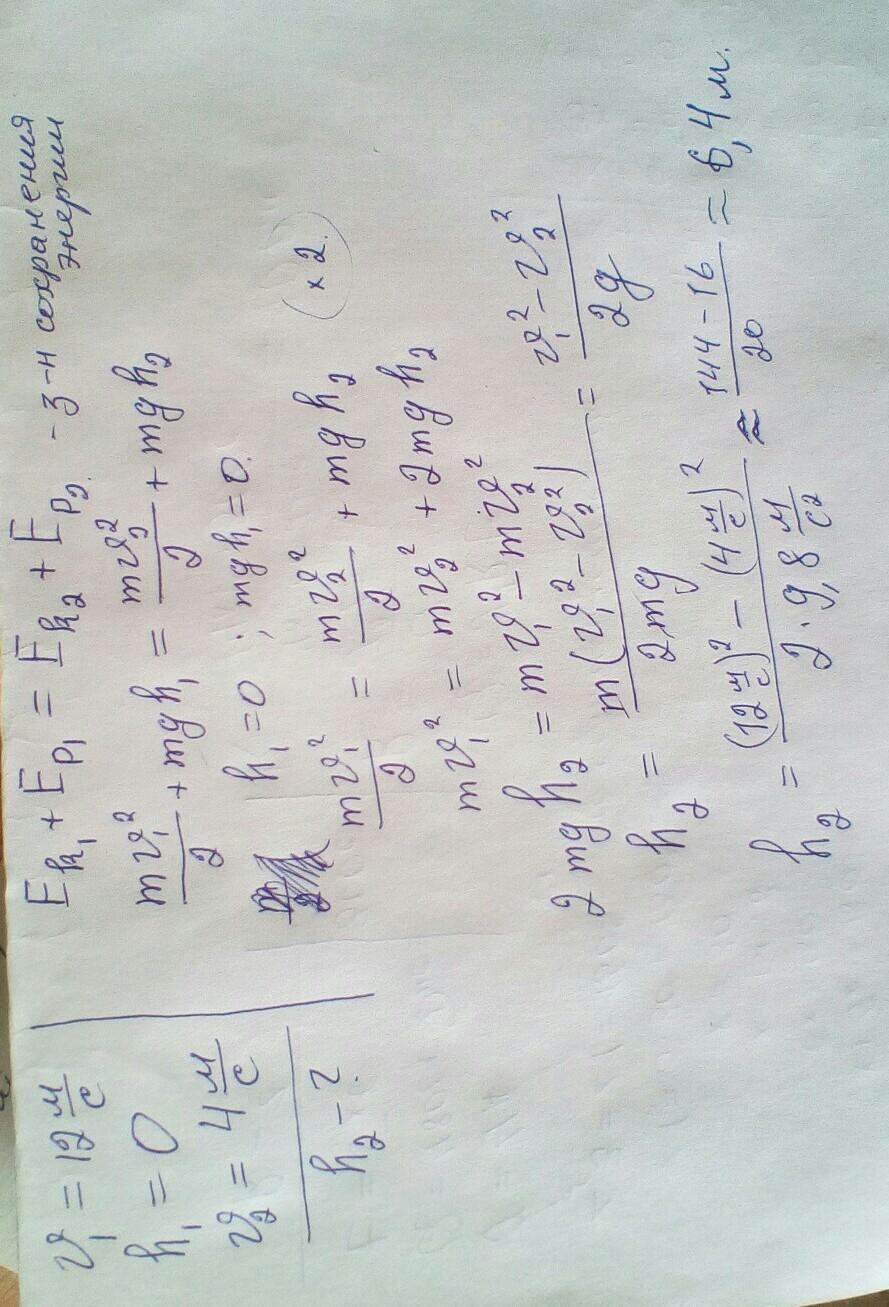 v₁ = 12 м/с
h₁ = 0
v₂ = 4 м/с
h₂ - ?
Eк₁ + Eр₁ = Eк₂ + Eр₂ - з-н сохранения энергии
mv₁²/2 + mgh₁ = mv₂²/2 + mgh₂
h₁ = 0 ; mgh₁ = 0.
mv₁²/2 = mv₂²/2 + mgh₂ (×2.)
mv₁² = mv₂² + 2mgh₂
2mgh₂ = mv₁² - mv₂²
h₂ = m(v₁² - v₂²)/2mg = v₁² - v₂²/2g
h₂ = (12 м/с)² - (4 м/с)²/2·9,8 м/с² ≈ 144-16/20 ≈ 6,4 м.